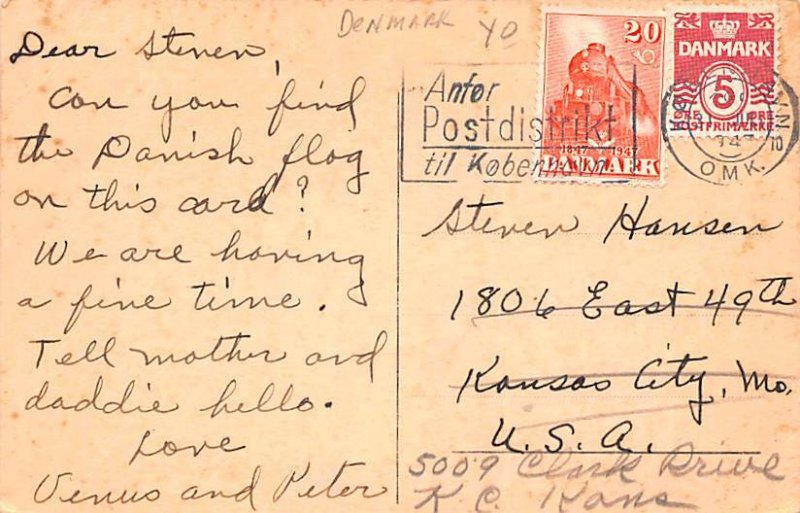 Dear Steven,
Can you find
the Danish flag
on this card?
We are having
a fine time.
Tell mother and
daddie hello.
Love
Venus and Peter
DENMARK 40
Anfør
Postdistrikt
til København
20
1847 1947
DANMARK
DANMARK
5
ØRE ØRE
POSTFRIMÆRKE
OMK.
Steven Hansen
1806 East 49th
Kansas City, Mo.
U.S.A.
5009 Clark Drive
K C. Kans